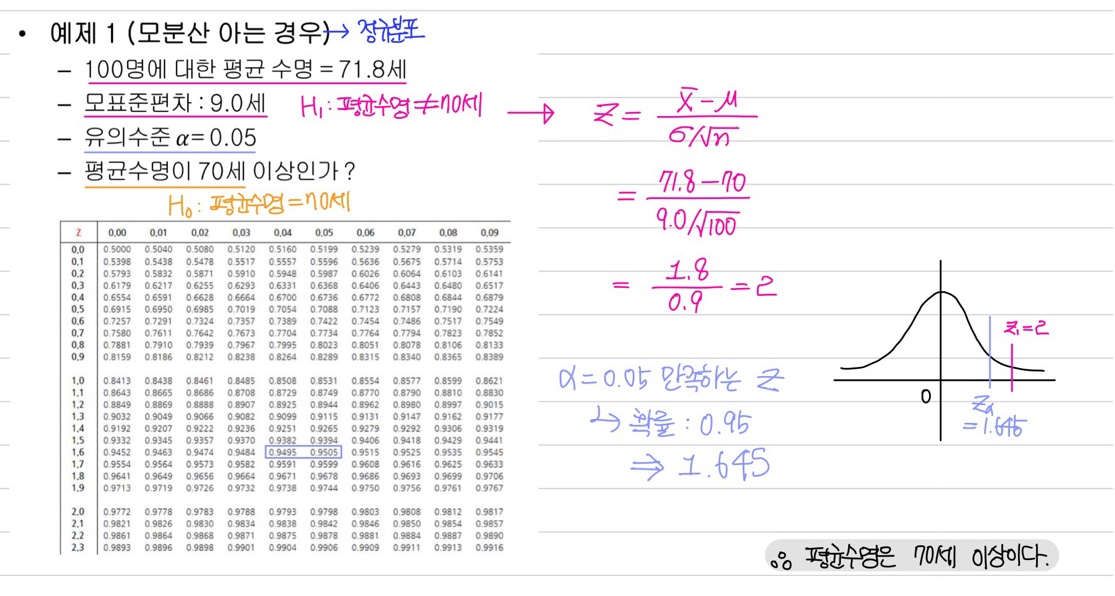 • 예제 1 (모분산 아는 경우) → 정규분포
– 100명에 대한 평균 수명 = 71.8세
– 모표준편차 : 9.0세
H₁: 평균수명 ≠ 70세 →
– 유의수준 α= 0.05
– 평균수명이 70세 이상인가 ?
H₀: 평균수명 = 70세
Z 0,00 0,01 0,02 0,03 0,04 0,05 0,06 0,07 0,08 0,09
0,0 0.5000 0.5040 0.5080 0.5120 0.5160 0.5199 0.5239 0.5279 0.5319 0.5359
0,1 0.5398 0.5438 0.5478 0.5517 0.5557 0.5596 0.5636 0.5675 0.5714 0.5753
0,2 0.5793 0.5832 0.5871 0.5910 0.5948 0.5987 0.6026 0.6064 0.6103 0.6141
0,3 0.6179 0.6217 0.6255 0.6293 0.6331 0.6368 0.6406 0.6443 0.6480 0.6517
0,4 0.6554 0.6591 0.6628 0.6664 0.6700 0.6736 0.6772 0.6808 0.6844 0.6879
0,5 0.6915 0.6950 0.6985 0.7019 0.7054 0.7088 0.7123 0.7157 0.7190 0.7224
0,6 0.7257 0.7291 0.7324 0.7357 0.7389 0.7422 0.7454 0.7486 0.7517 0.7549
0,7 0.7580 0.7611 0.7642 0.7673 0.7704 0.7734 0.7764 0.7794 0.7823 0.7852
0,8 0.7881 0.7910 0.7939 0.7967 0.7995 0.8023 0.8051 0.8078 0.8106 0.8133
0,9 0.8159 0.8186 0.8212 0.8238 0.8264 0.8289 0.8315 0.8340 0.8365 0.8389
1,0 0.8413 0.8438 0.8461 0.8485 0.8508 0.8531 0.8554 0.8577 0.8599 0.8621
1,1 0.8643 0.8665 0.8686 0.8708 0.8729 0.8749 0.8770 0.8790 0.8810 0.8830
1,2 0.8849 0.8869 0.8888 0.8907 0.8925 0.8944 0.8962 0.8980 0.8997 0.9015
1,3 0.9032 0.9049 0.9066 0.9082 0.9099 0.9115 0.9131 0.9147 0.9162 0.9177
1,4 0.9192 0.9207 0.9222 0.9236 0.9251 0.9265 0.9279 0.9292 0.9306 0.9319
1,5 0.9332 0.9345 0.9357 0.9370 0.9382 0.9394 0.9406 0.9418 0.9429 0.9441
1,6 0.9452 0.9463 0.9474 0.9484 0.9495 0.9505 0.9515 0.9525 0.9535 0.9545
1,7 0.9554 0.9564 0.9573 0.9582 0.9591 0.9599 0.9608 0.9616 0.9625 0.9633
1,8 0.9641 0.9649 0.9656 0.9664 0.9671 0.9678 0.9686 0.9693 0.9699 0.9706
1,9 0.9713 0.9719 0.9726 0.9732 0.9738 0.9744 0.9750 0.9756 0.9761 0.9767
2,0 0.9772 0.9778 0.9783 0.9788 0.9793 0.9798 0.9803 0.9808 0.9812 0.9817
2,1 0.9821 0.9826 0.9830 0.9834 0.9838 0.9842 0.9846 0.9850 0.9854 0.9857
2,2 0.9861 0.9864 0.9868 0.9871 0.9875 0.9878 0.9881 0.9884 0.9887 0.9890
2,3 0.9893 0.9896 0.9898 0.9901 0.9904 0.9906 0.9909 0.9911 0.9913 0.9916
Z = (x̄ − μ) / (σ/√n)
= (71.8 − 70) / (9.0/√100)
= 1.8 / 0.9 = 2
α = 0.05 만족하는 Z
↳ 확률 : 0.95
⇒ 1.645
Z₁=2
0
Zα
= 1.645
∴ 평균수명은 70세 이상이다.